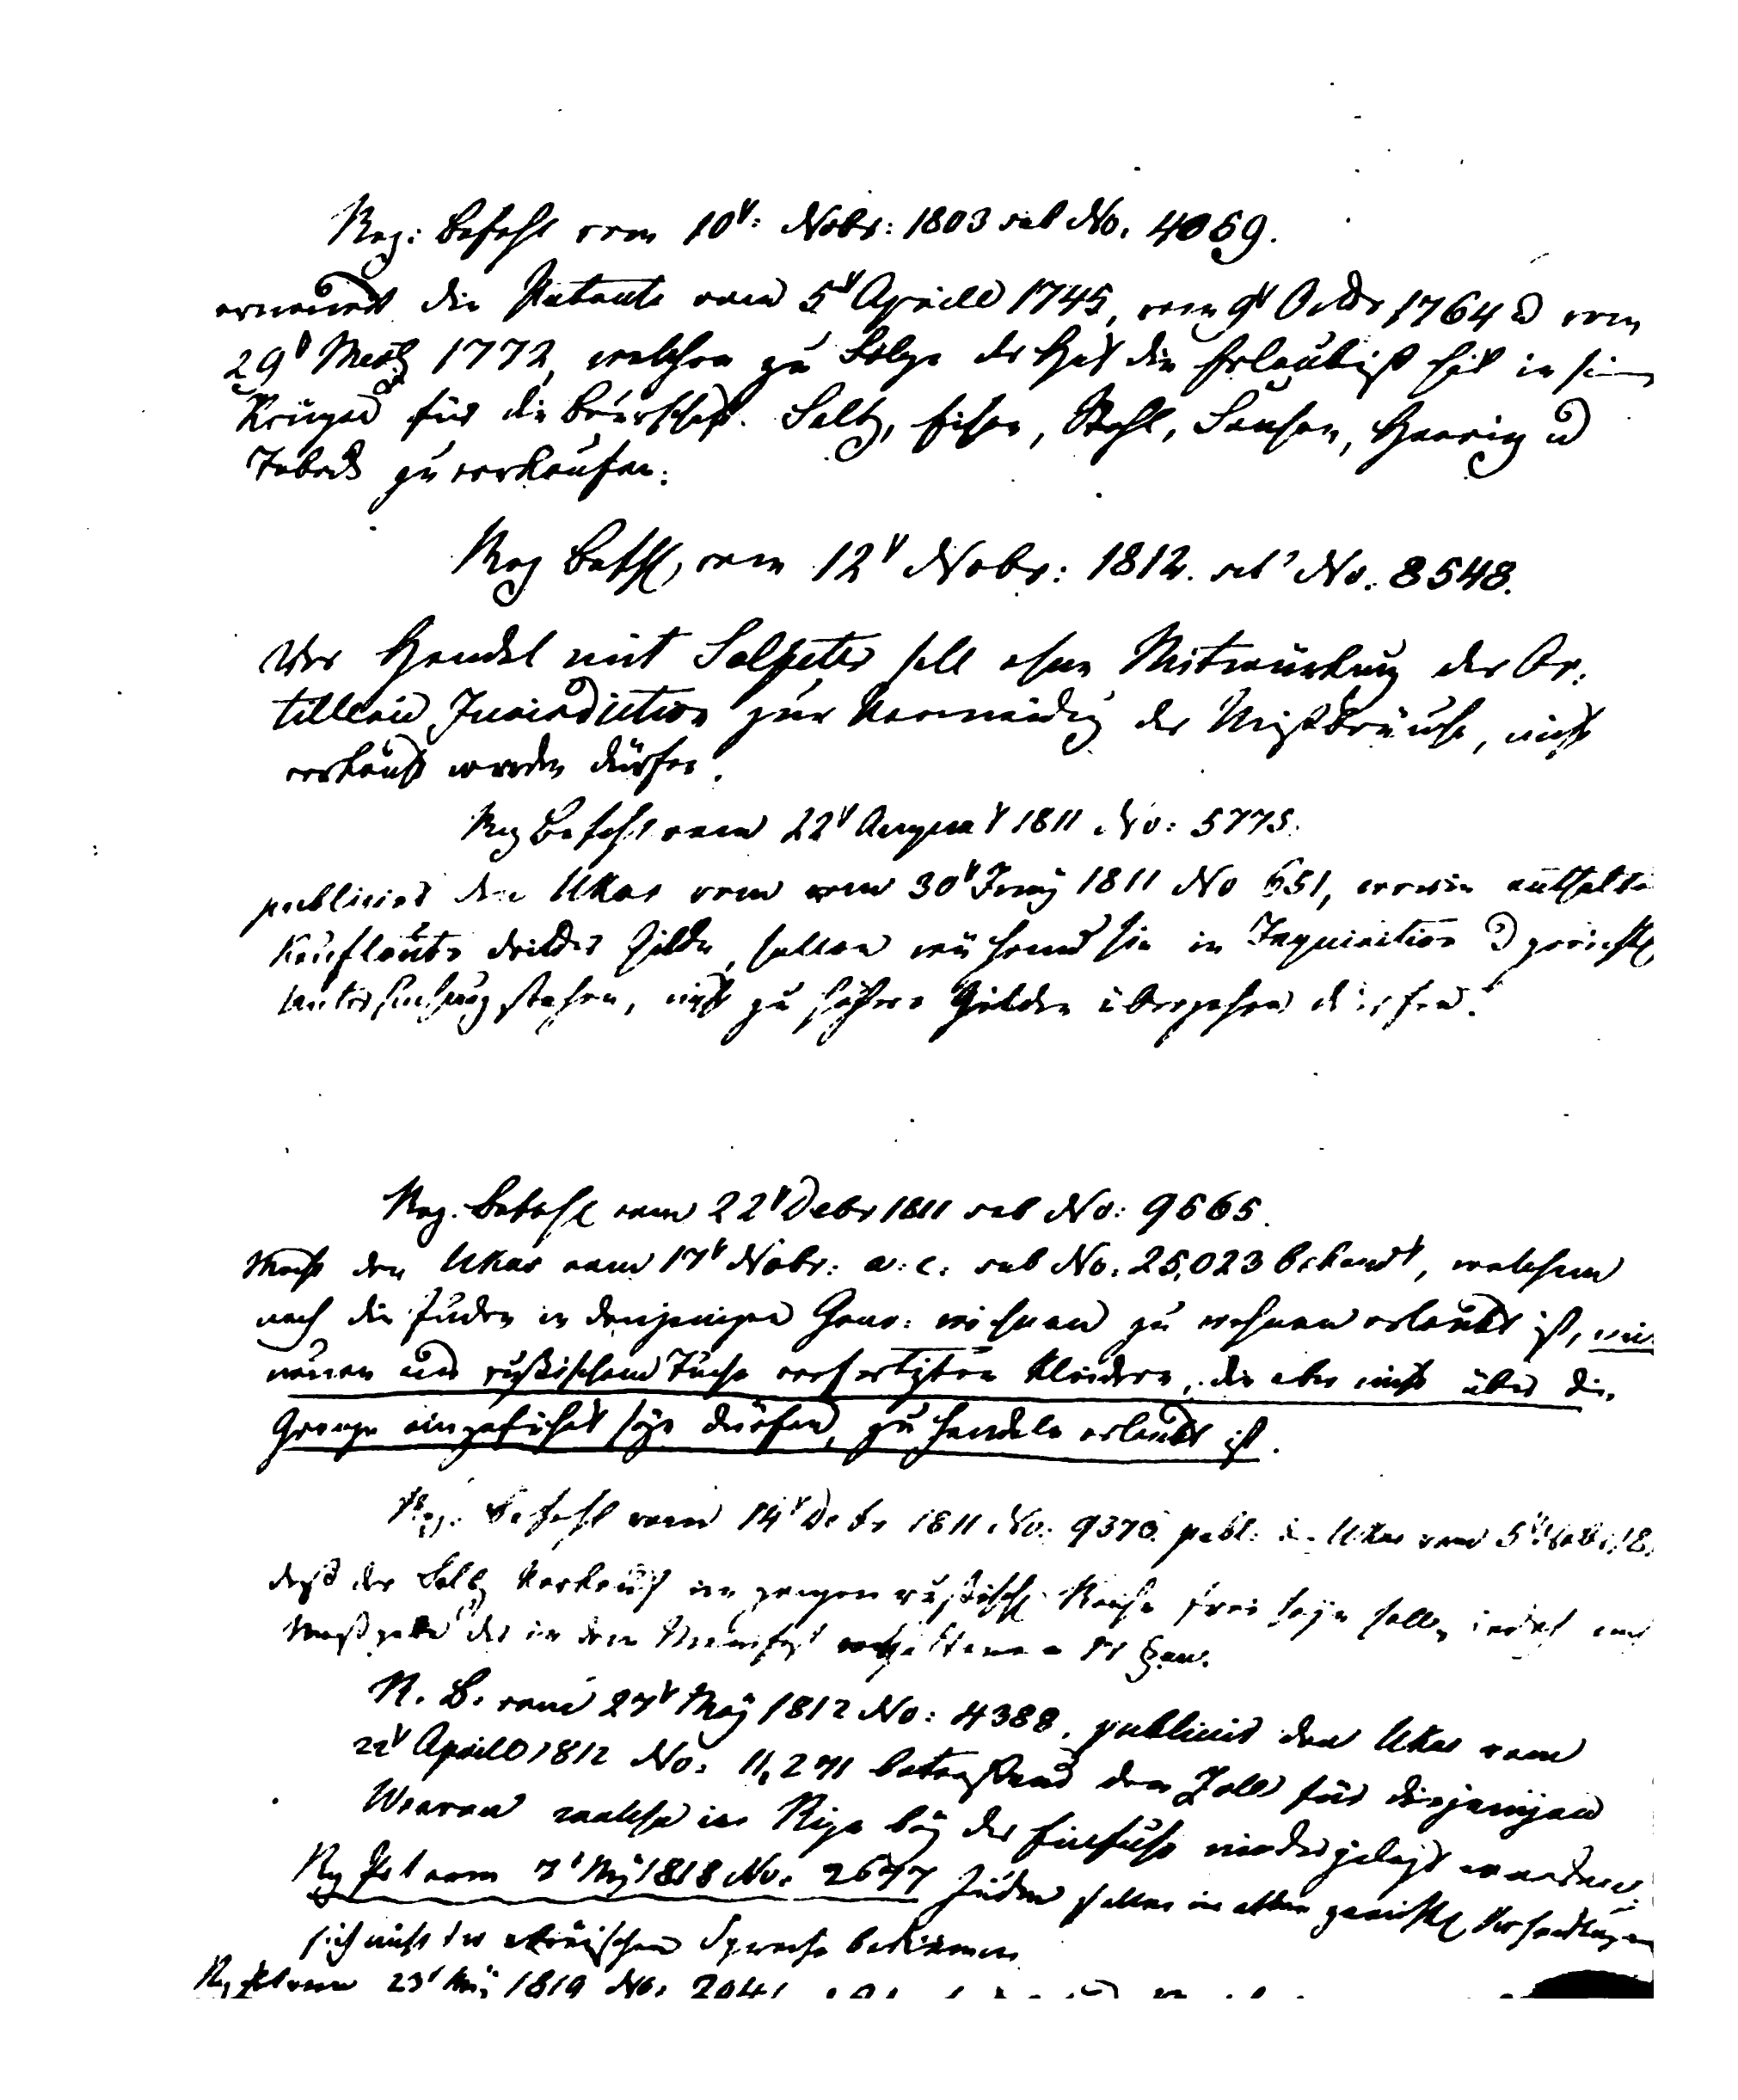 Reg: Befehl vom 10t: Nobr: 1803 sub No. 4069.
erneuert die Patente vom 5t Aprill 1745, vom 9t Octbr 1764 u vom
29t Mertz 1772, welchen zu Folge der Hof die Erlaubniß hat in seinen
Krügen für die Bauerschaft. Saltz, Eisen, Stahl, Sensen, Heering u
Toback zu verkaufen.
Reg Befhl, vom 12t Nobr: 1812. sub No. 8548.
Der Handel mit Salpeter soll ohne Mitwürkung der Ar:
tillerie Jurisdiction zur Vermeidug der Mißbräuche, nicht
verkauft werden dürfen.
Reg Befehl vom 22t August 1811 No: 5775.
publicirt den Ukas vom vom 30t Juny 1811 No 651, worin enthalten
Kaufleute dritter Gilde, sollen während sie in Inquisition u gerichtl
Untersuchung stehen, nicht zu höhere Gilden übergehen dürfen.
Reg. Befehl vom 22t Debr 1811 sub No: 9565.
Macht den Ukas vom 17t Nobr: a: c: sub No. 25,023 bekandt, welchem
nach die Juden in denjenigen Gouv: wo ihnen zu wohnen erlaubt ist, mit
neuen aus rußischem Tuche verfertigten Kleidern, die aber nicht über die
Grenze eingeführt seyn dürfen, zu handeln erlaubt ist.
Reg. Befehl vom 14t Debr 1811 No: 9370. publ: d. Ukas vom 5t
daß der Saltz Verkauf im ganzen rußisch Reiche frei seyn solle, jedoch
Maßgabe der in dem Manifest enthaltenen
R. B. vom 27t May 1812 No: 4388. publicirt den Ukas vom
22t Aprill 1812 No: 11,271 betreffend den Zoll für diejenigen
Waaren welche in Riga bey der Einfuhr niedergelegt werden.
Rg Pat vom 7t My 1818 No. 2677 Juden sollen in allen gerichtl Verhandlungen
sich nicht der ebräischen Sprache bedienen
Rg Pat vom 23t 1819 No. 2041